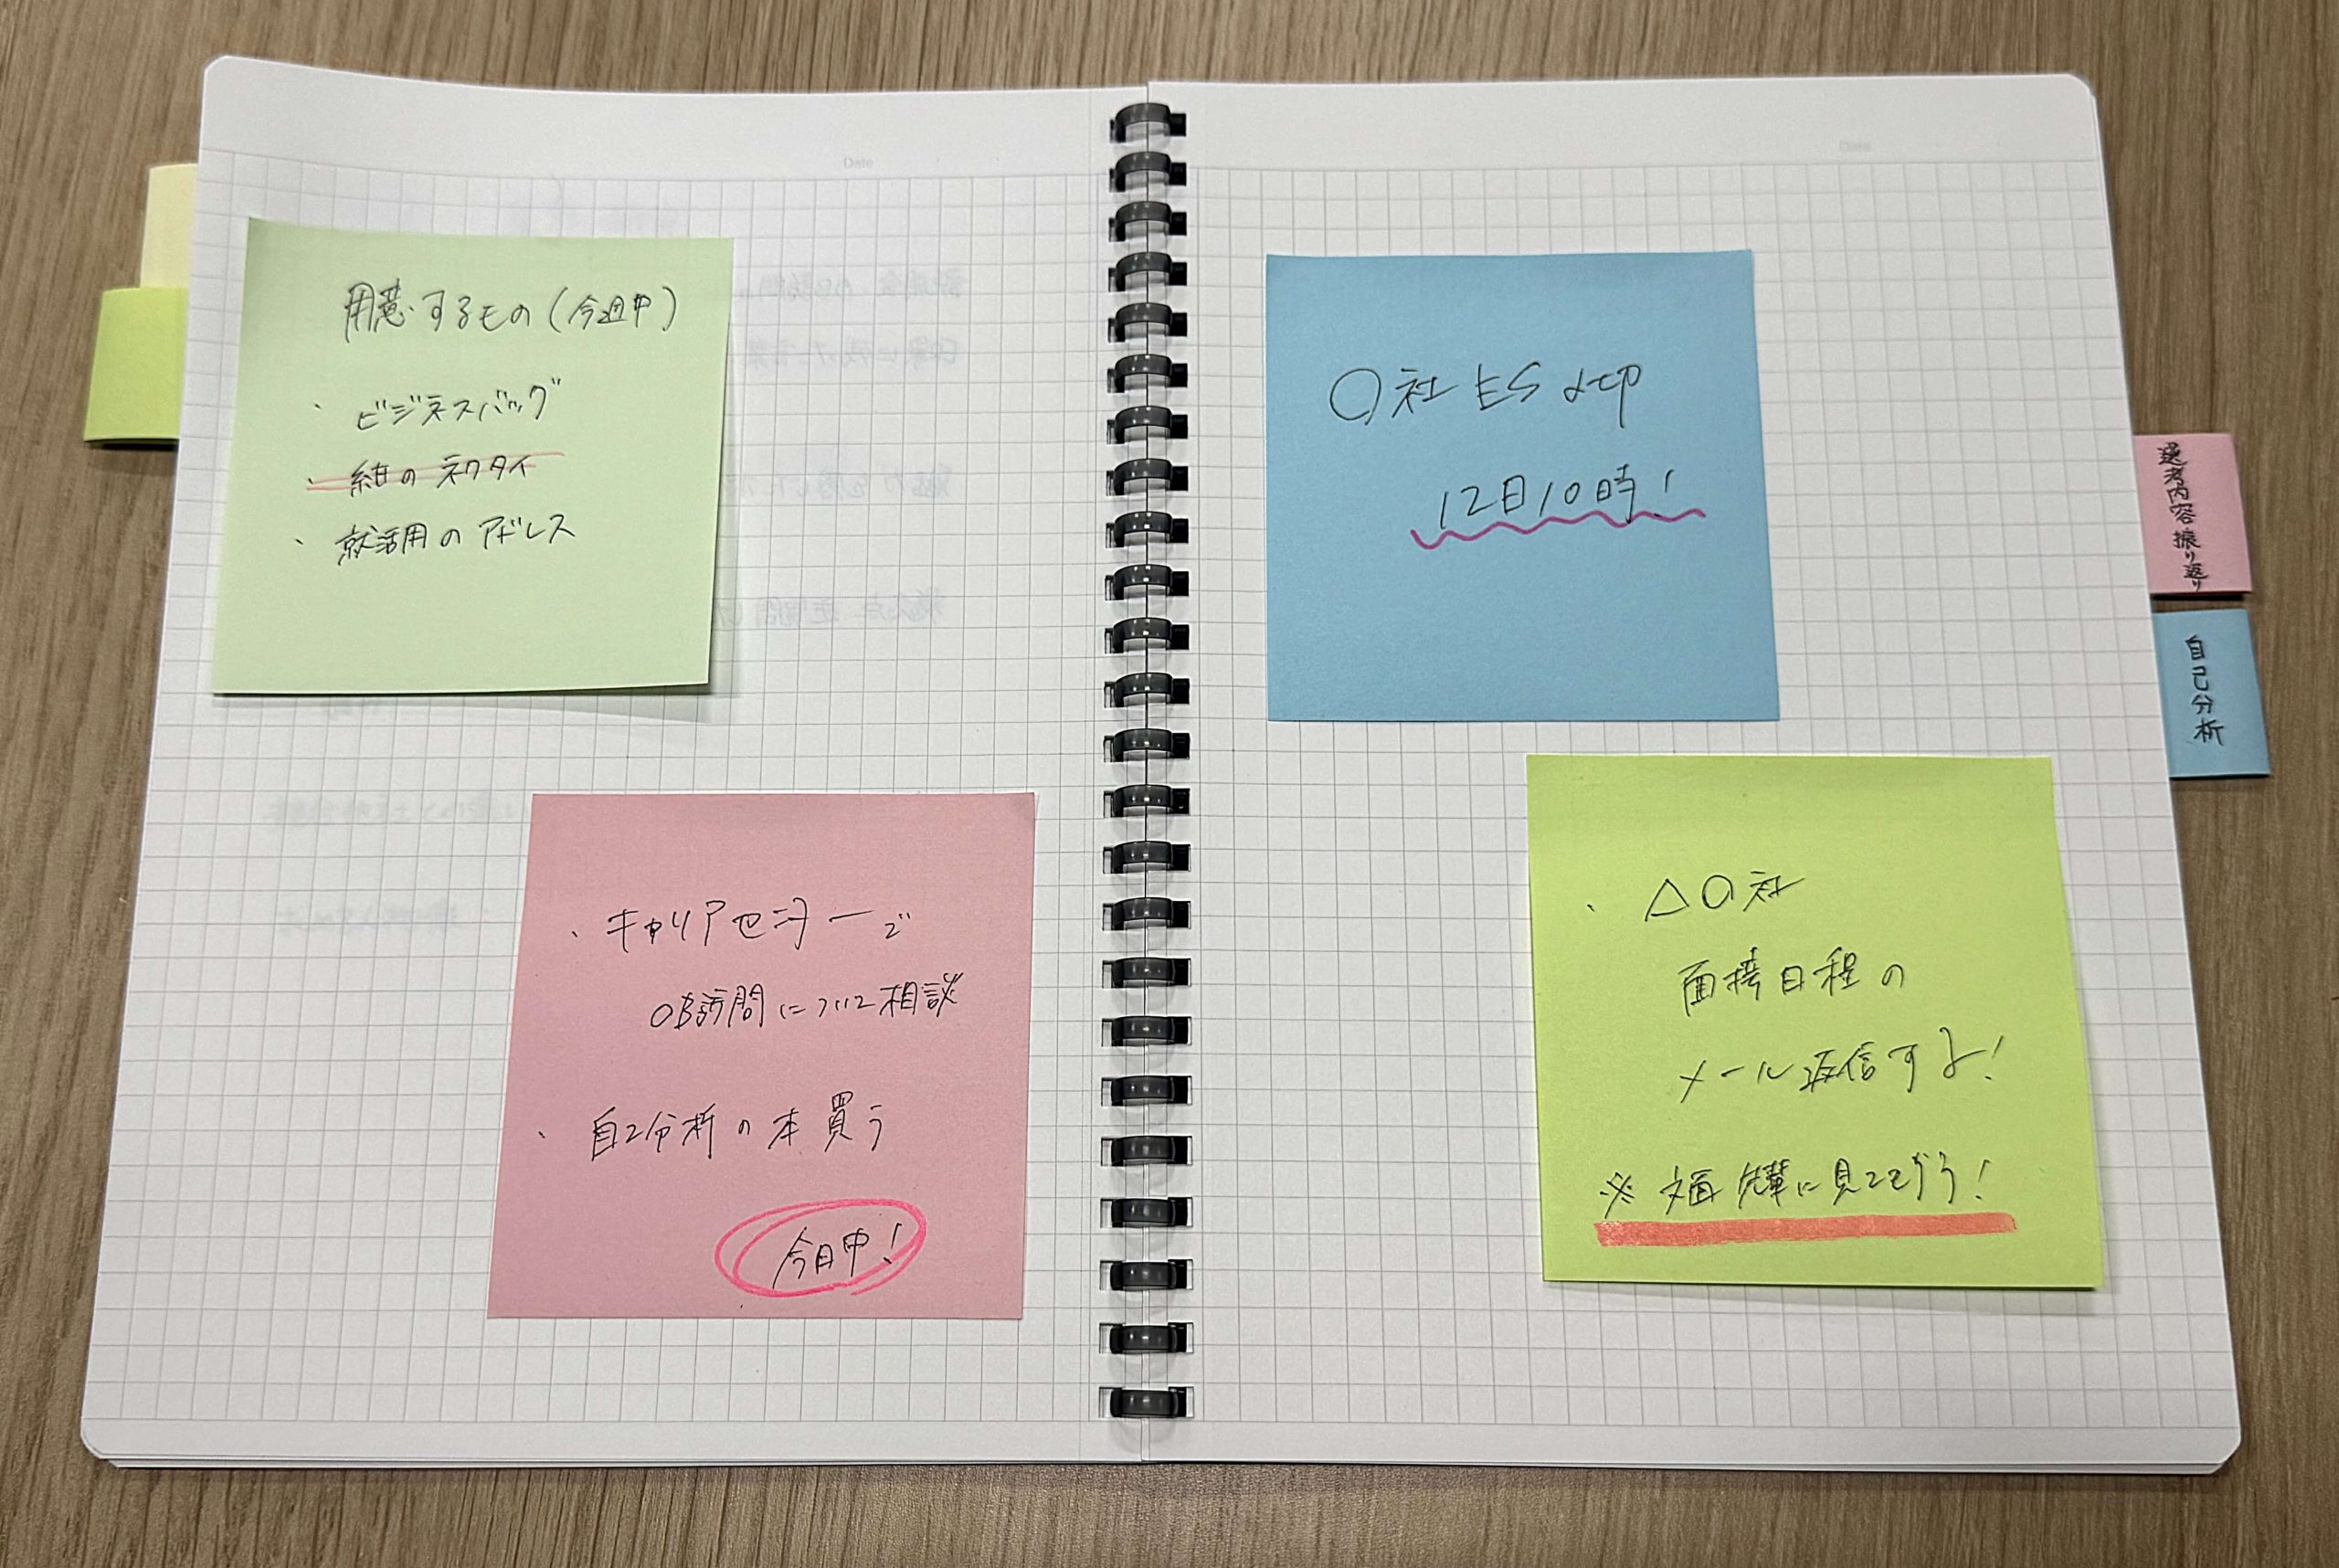 Date
用意するもの(今週中)
・ビジネスバッグ
・紺のネクタイ
・就活用のアドレス
・キャリアセンターで
OB訪問について相談
・自己分析の本買う
今日中!
Date
〇社ES〆切
12日10時!
・△〇社
面接日程の
メール返信する!
※文面先輩に見てもらう!
選考内容振り返り
自己分析